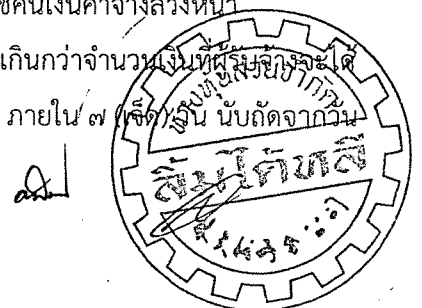 ชดใช้คืนเงินค่าจ้างล่วงหน้า
เกินกว่าจำนวนเงินที่ผู้รับจ้างจะได้
ภายใน ๗ (เจ็ด) วัน นับถัดจากวัน
ห้างหุ้นส่วนจำกัด
ลิ้มโค้วหลี